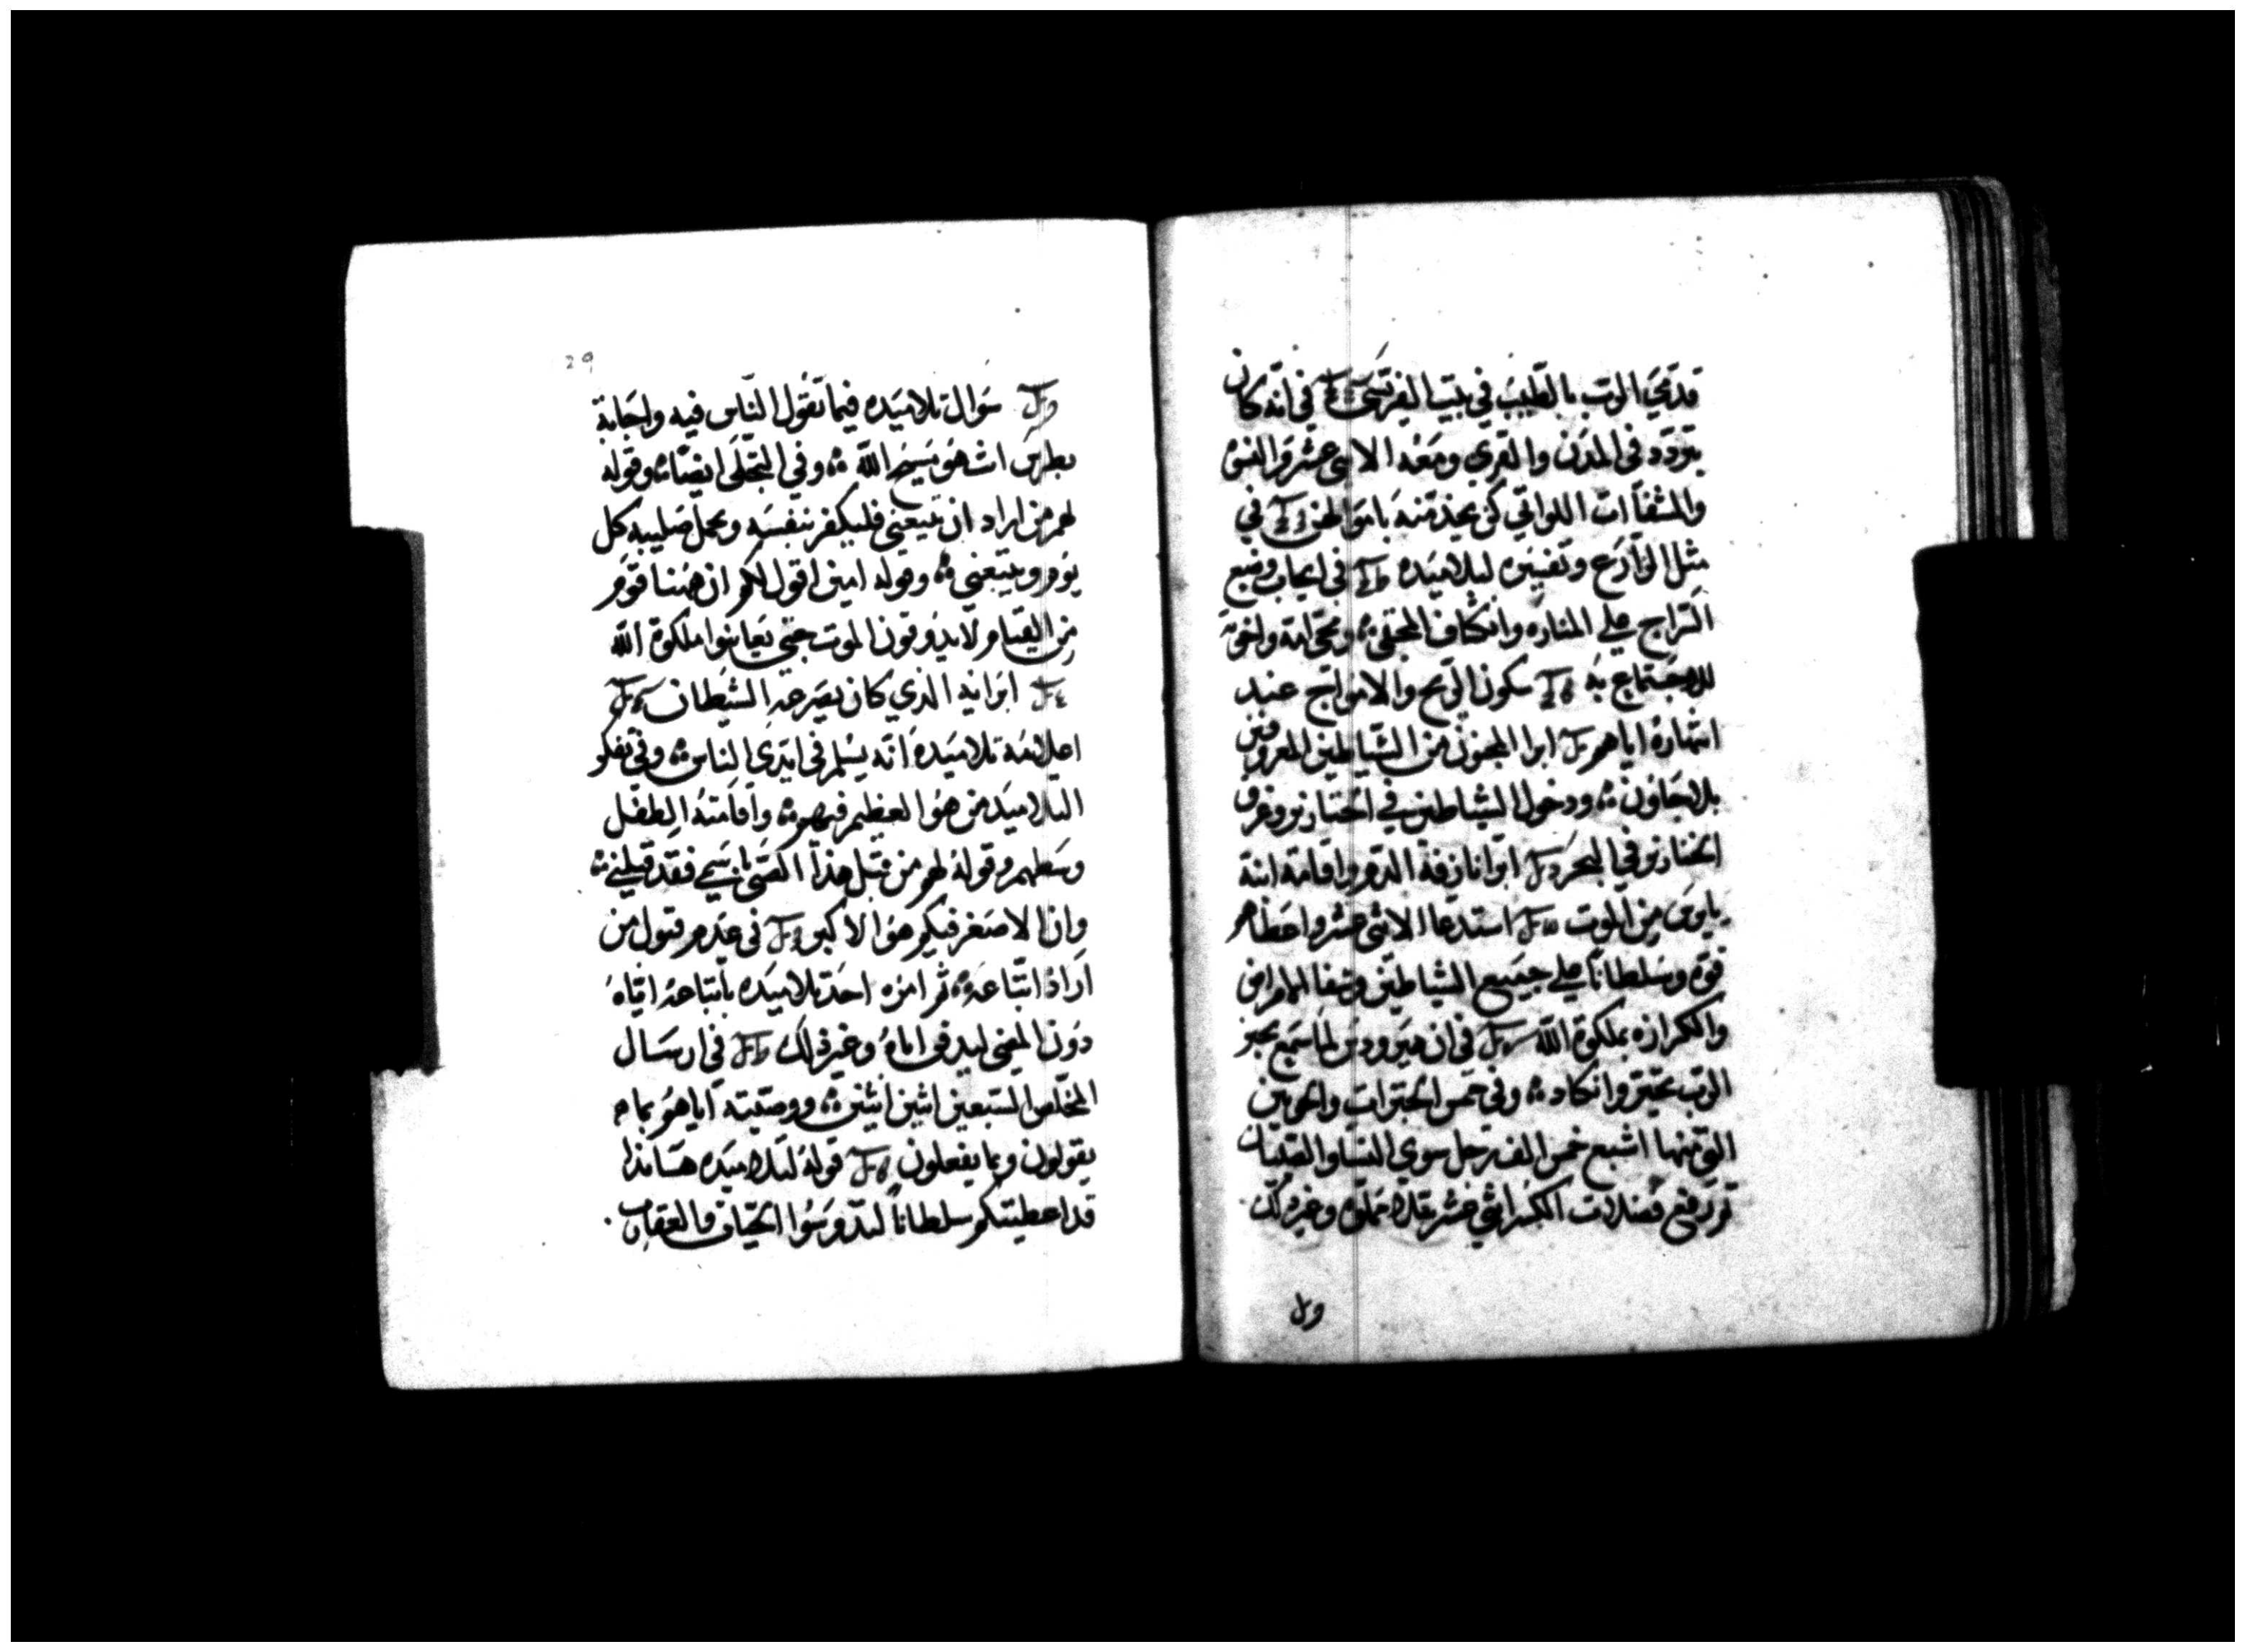 قد محي الرب بالطيب في بيت الفريسي في انه كان
يتردد في المدن والقري ومعه الاثني عشر والنسوُ
والمشفاات اللواتي كن يخدمنه باموالهن في
مثل الزارع وتفسيره لتلاميده في ايجاب وضع
السراج علي المناره وانكشاف المخفي ومجي امه واخوته
للاجتماع به سكون الريح والامواج عند
انتهاره اياهم ابرا المجنون من الشياطين المعروفين
بلاجاون ودخول الشياطين في الخنازير وغرق
الخنازير في البحر ابرا نازفة الدم واقامة ابنة
يايرس من الموت استدعا الاثني عشر واعطاهم
قوه وسلطانًا علي جميع الشياطين وشفا الامراض
والكرازه بملكوة الله في ان هيرودس لما سمع بخبر
الرب تحيّر وانكاد وفي خمس الخبزات والحوتين
التي منها اشبع خمس الف رجل سوي النسا والصبيان
ثم رفع فضلات الكسر اثني عشر مملوه وغير ذلك
ول
29
سوال تلاميده فيما تقول الناس فيه واجابة
بطرس انت هو مسيح الله وفي التجلي ايضًا وقوله
لهم من اراد ان يتبعني فليكفر بنفسه ويحمل صليبه كل
يوم ويتبعني وقوله امين اقول لكم ان هنا قوم
من القيام لا يدوقون الموت حتي يعاينوا ملكوة الله
ابرا ابنه الذي كان يصرعه الشيطان
اعلامه تلاميده انه يسلم في ايدي الناس وفي تفكر
التلاميد من هو العظيم فيهم واقامته الطفل
وسطهم وقوله لهم من قبل هذا الصبي باسمي فقد قبلني
وان الاصغر فيكم هو الاكبر في عدم قبول من
اراد اتباعه ثم امره احد تلاميده باتباعه اياه
دون المضي ليدفن اباه وغير ذلك في ارسال
المخلص السبعين اثنين اثنين ووصيته اياهم بما
يقولون وبما يفعلون قوله لتلاميده هانذا
قد اعطيتكم سلطانًا لتدوسوا الحيات والعقارب